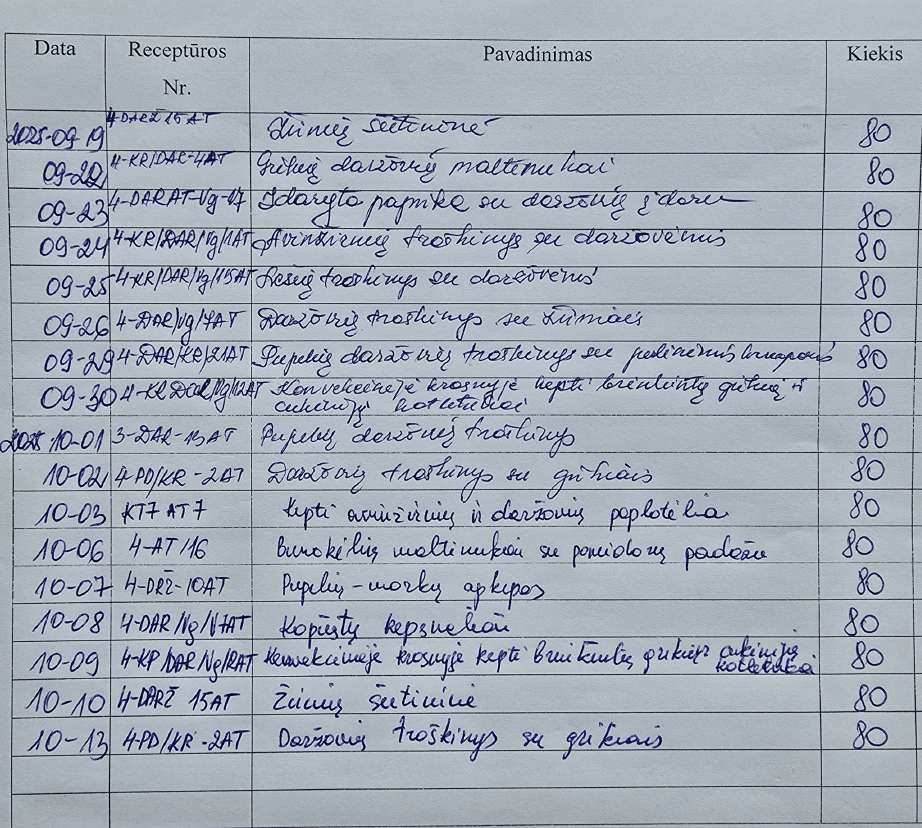 Data Receptūros Nr. Pavadinimas Kiekis
2025-09-19 4-DARŽ 15AT Žirnių šutinинė 80
09-22 4-KR/DAR-4AT Grikių daržovių maltinukai 80
09-23 4-DARAT-Vg-17 Įdaryta paprika su daržovių įdaru 80
09-24 4-KR/DAR/Vg/1AT Avinžirnių troškinys su daržovėmis 80
09-25 4-KR/DAR/Vg/15AT Lęšių troškinys su daržovėmis 80
09-26 4-DAR/Vg/7AT Daržovių troškinys su žirniais 80
09-29 4-DAR/KR/21AT Pupelių daržovių troškinys su 80
09-30 4-KR Dar/Vg/12AT Konvekcinėje krosnyje kepti brinkintų grikių ir
cukinijų kotletukai 80
2025 10-01 3-DAR-13AT Pupelių daržovių troškinys 80
10-02 4-PD/KR-2AT Daržovių troškinys su grikiais 80
10-03 KT7 AT7 Kepti avinžirnių ir daržovių paplotėliai 80
10-06 4-AT/16 Burokėlių maltinukai su pomidorų padažu 80
10-07 4-DRŽ-10AT Pupelių-morkų apkepas 80
10-08 4-DAR/Vg/17AT Kopūstų kepsneliai 80
10-09 4-KP/DAR/Vg/12AT Konvekcinėje krosnyje kepti brinkintų grikių ir cukinijų
kotletukai 80
10-10 4-DARŽ 15AT Žirnių šutininė 80
10-13 4-PD/KR-2AT Daržovių troškinys su grikiais 80